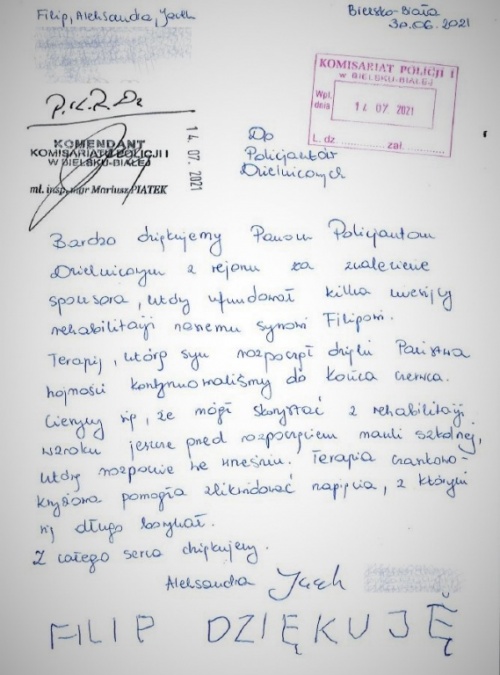 Filip, Aleksandra, Jacek
Bielsko-Biała
30.06.2021
KOMISARIAT POLICJI I
W BIELSKU-BIAŁEJ
Wpł. dnia
14 07. 2021
L. dz. zał.
P.K.R.Dz
KOMENDANT
KOMISARIATU POLICJI I
W BIELSKU-BIAŁEJ
mł. insp. mgr Mariusz PIĄTEK
14 07. 2021
Do
Policjantów
Dzielnicowych
Bardzo dziękujemy Panom Policjantom
Dzielnicowym z rejonu za znalezienie
sponsora, który ufundował kilka miesięcy
rehabilitacji naszemu synowi Filipowi.
Terapię, którą syn rozpoczął dzięki Państwa
hojności kontynuowaliśmy do końca czerwca.
Cieszymy się, że mógł skorzystać z rehabilitacji
wzroku jeszcze przed rozpoczęciem nauki szkolnej,
którą rozpocznie we wrześniu. Terapia czaszkowo-
krzyżowa pomogła zlikwidować napięcia, z którymi
się długo borykał.
Z całego serca dziękujemy.
Aleksandra Jacek
FILIP DZIĘKUJĘ